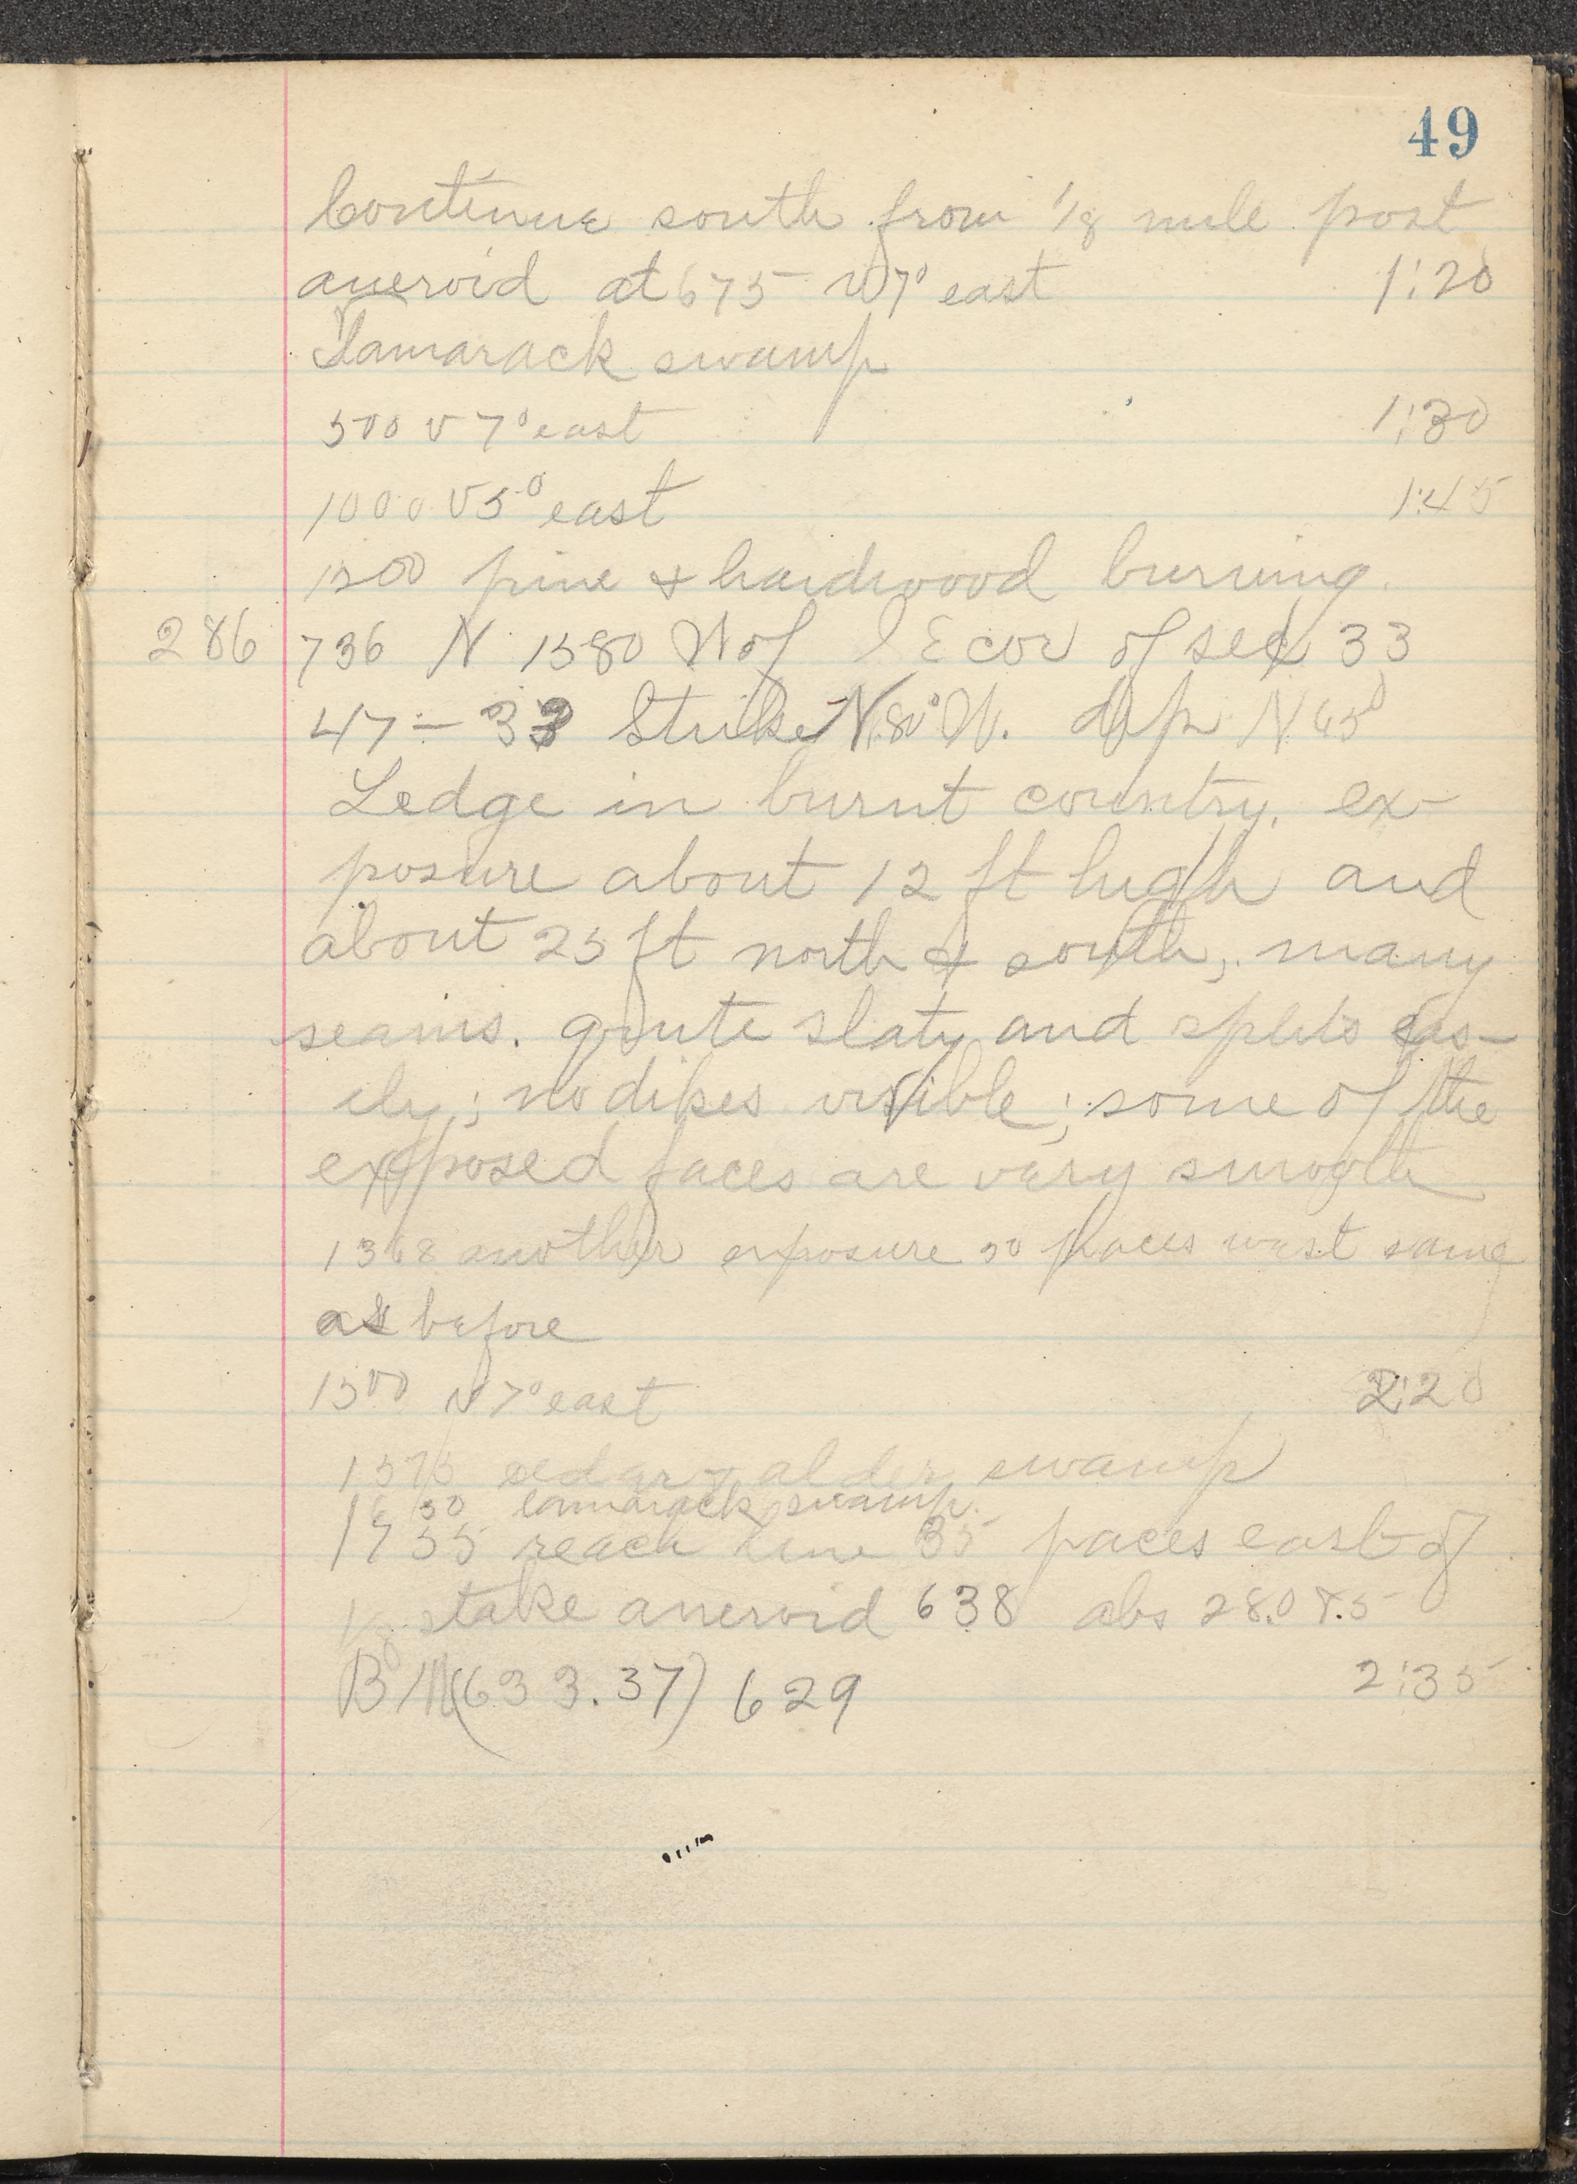 49
Continue south from 1/8 mile post
aneroid at 675 V 7° east 1:20
Tamarack swamp
500 V 7° east 1:30
1000 V 5° east 1:45
1200 pine & hardwood burning.
286 736 N 1580 W of S E cor of sec 33
47 - 33 Strike N 80° W. dip N 45°
Ledge in burnt country, ex-
posure about 12 ft high and
about 25 ft north & south, many
seams. quite slaty and splits eas-
ily; no dikes visible; some of the
exposed faces are very smooth
1368 another exposure 50 paces west same
as before
1500 V 7° east 2:20
1575 cedar & alder swamp
1650 tamarack swamp.
1755 reach line 35 paces east of
1/8 stake aneroid 638 abs 28.07.5
B M (633.37) 629 2:35